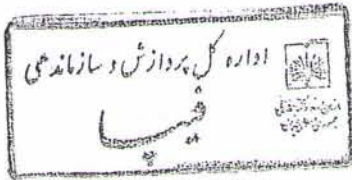 اداره کل پردازش و سازماندهی
فیپا